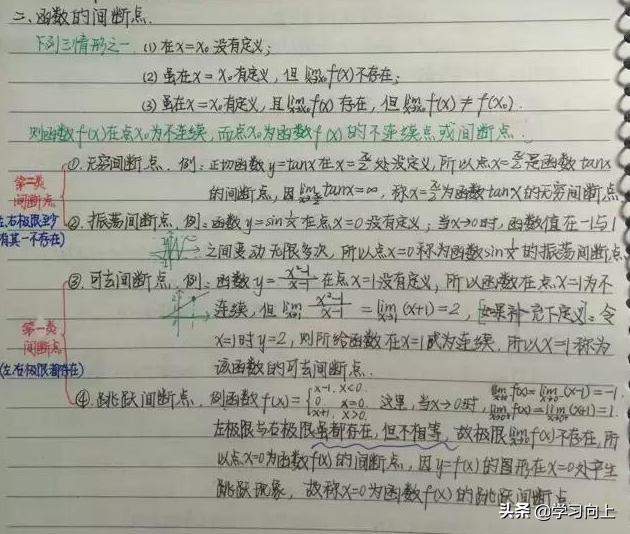 二、函数的间断点.
下列三情形之一 (1) 在x=x₀没有定义;
(2) 虽在x=x₀有定义, 但 lim x→x₀ f(x)不存在;
(3) 虽在x=x₀有定义, 且 lim x→x₀ f(x) 存在, 但 lim x→x₀ f(x) ≠ f(x₀).
则函数f(x)在点x₀为不连续, 而点x₀为函数f(x)的不连续点或间断点.
①. 无穷间断点. 例: 正切函数y=tanx在x=π/2处没定义, 所以点x=π/2是函数tanx
的间断点, 因 lim x→π/2 tanx=∞, 称x=π/2为函数tanx的无穷间断点
第二类
间断点
(左.右极限至少
有其一不存在)
②. 振荡间断点. 例: 函数y=sin 1/x 在点x=0没有定义; 当x→0时, 函数值在-1与1
之间变动无限多次, 所以点x=0称为函数sin 1/x 的振荡间断点
③. 可去间断点. 例: 函数 y= (x²-1)/(x-1) 在点x=1没有定义, 所以函数在点x=1为不
连续, 但 lim x→1 (x²-1)/(x-1) = lim x→1 (x+1)=2, [如果补充下定义]: 令
x=1时y=2, 则所给函数在x=1成为连续. 所以x=1称为
该函数的可去间断点.
第一类
间断点
(左.右极限都存在)
④. 跳跃间断点. 例函数 f(x)= { x-1, x<0. 0 x=0. x+1, x>0. 这里, 当x→0时, lim x→0⁻ f(x)= lim x→0⁻ (x-1)=-1. lim x→0⁺ f(x)= lim x→0⁺ (x+1)=1.
左极限与右极限虽都存在, 但不相等, 故极限 lim x→0 f(x)不存在, 所
以点x=0为函数f(x)的间断点, 因y=f(x)的图形在x=0处产生
跳跃现象, 故称x=0为函数f(x)的跳跃间断点
头条 @学习向上